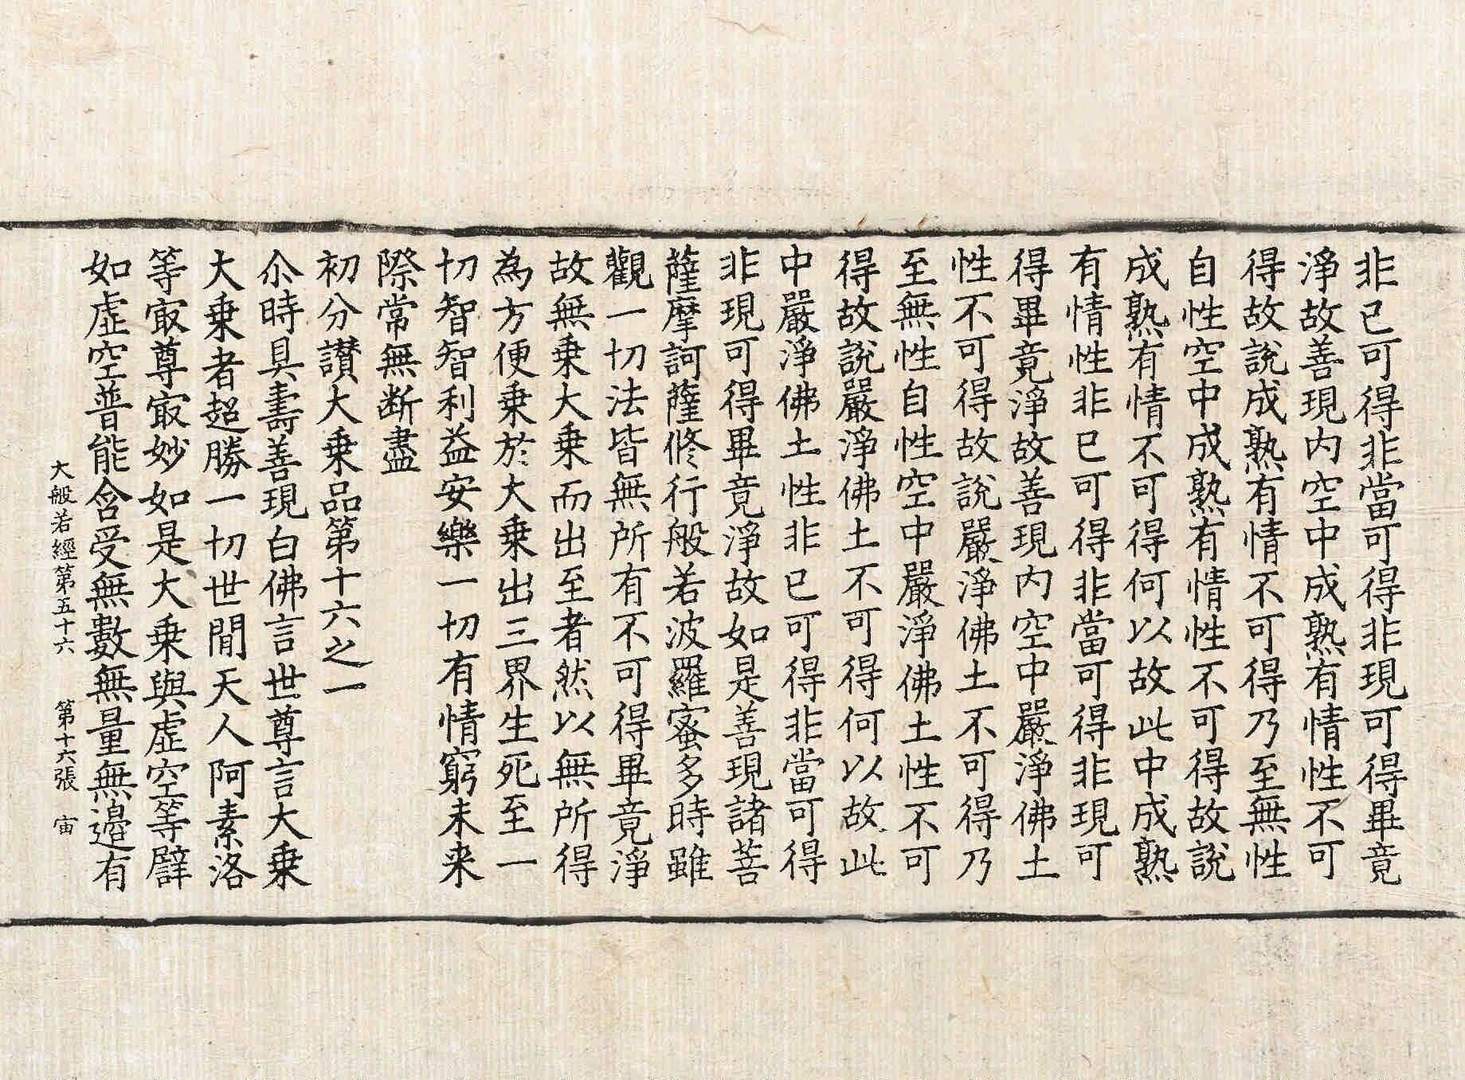 非已可得非當可得非現可得畢竟
淨故善現内空中成熟有情性不可
得故說成熟有情不可得乃至無性
自性空中成熟有情性不可得故說
成熟有情不可得何以故此中成熟
有情性非已可得非當可得非現可
得畢竟淨故善現内空中嚴淨佛土
性不可得故說嚴淨佛土不可得乃
至無性自性空中嚴淨佛土性不可
得故說嚴淨佛土不可得何以故此
中嚴淨佛土性非已可得非當可得
非現可得畢竟淨故如是善現諸菩
薩摩訶薩修行般若波羅蜜多時雖
觀一切法皆無所有不可得畢竟淨
故無乘大乘而出至者然以無所得
為方便乘於大乘出三界生死至一
切智智利益安樂一切有情窮未来
際常無断盡
初分讃大乘品第十六之一
尒時具壽善現白佛言世尊言大乘
大乘者超勝一切世間天人阿素洛
等冣尊冣妙如是大乘與虛空等譬
如虛空普能含受無數無量無邉有
大般若經第五十六 第十六張 宙